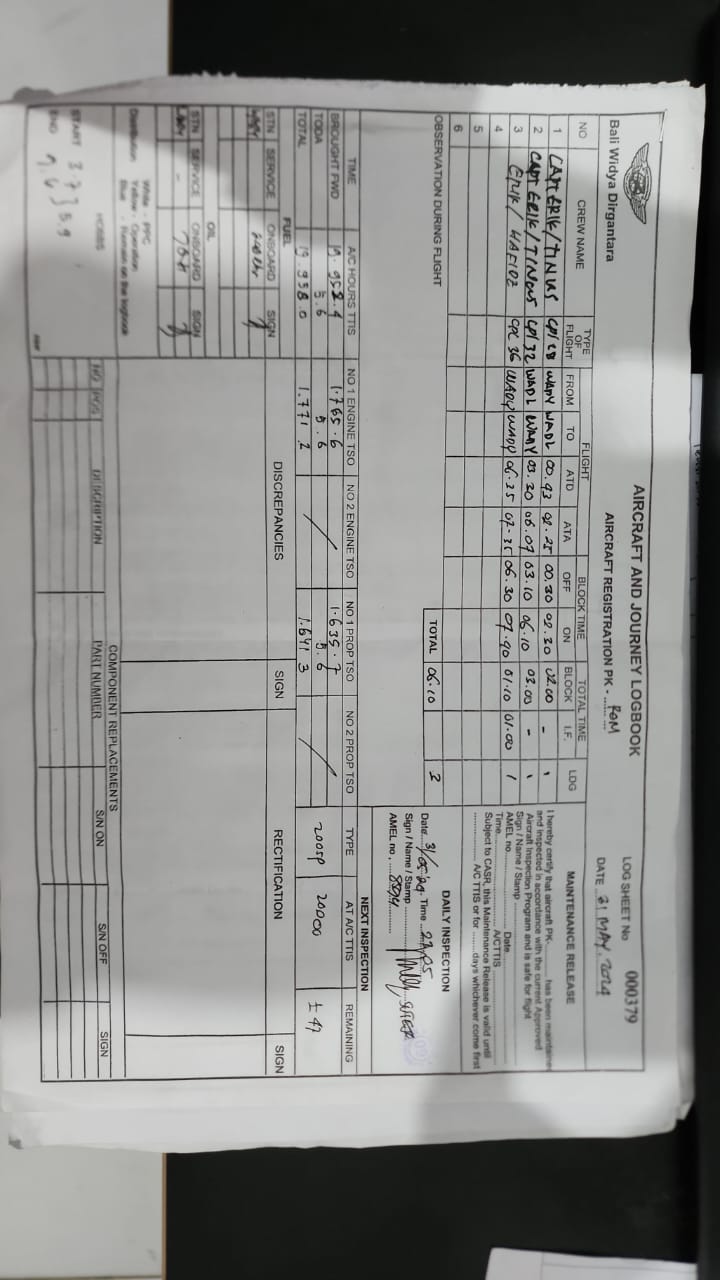 AIRCRAFT AND JOURNEY LOGBOOK
Bali Widya Dirgantara
AIRCRAFT REGISTRATION PK - ROM
LOG SHEET No 000379
DATE 31 MAY. 2024
NO CREW NAME TYPE OF FLIGHT FLIGHT BLOCK TIME TOTAL TIME LDG
FROM TO ATD ATA OFF ON BLOCK I.F.
1 CAPT ERIK/TINUS CPL 28 WADY WADL 00.43 02.25 00.30 02.30 02.00 - 1
2 CAPT ERIK/TINUS CPL 32 WADL WADY 03.20 06.07 03.10 06.10 03.00 - 1
3 ERIK/ HAFIDZ CPL 36 WADY WADY 06.35 07.35 06.30 07.40 01.10 01.00 1
4
5
6
TOTAL 06.10 3
OBSERVATION DURING FLIGHT
MAINTENANCE RELEASE
I hereby certify that aircraft PK-........ has been maintained
and inspected in accordance with the current Approved
Aircraft Inspection Program and is safe for flight
Sign / Name / Stamp
AMEL no. Date
Time A/CTTIS
Subject to CASR, this Maintenance Release is valid until
A/C TTIS or for ...... days whichever come first
DAILY INSPECTION
Date 31/05/24 Time
Sign / Name / Stamp
AMEL no.
TIME A/C HOURS TTIS NO 1 ENGINE TSO NO 2 ENGINE TSO NO 1 PROP TSO NO 2 PROP TSO
BROUGHT FWD 19.952.4 1.765.6 1.635.7
TODAY 5.6 5.6 5.6
TOTAL 19.958.0 1.771.2 1.641.3
NEXT INSPECTION
TYPE AT A/C TTIS REMAINING
20000 ± 42
FUEL
STN SERVICE ONBOARD SIGN
OIL
STN SERVICE ONBOARD SIGN
DISCREPANCIES SIGN RECTIFICATION SIGN
Distribution White - PPC
Yellow - Operation
Blue - Remain on the logbook
HOBBS
START 3 7 3 5 9
END
COMPONENT REPLACEMENTS
NO POS DESCRIPTION PART NUMBER S/N ON S/N OFF SIGN